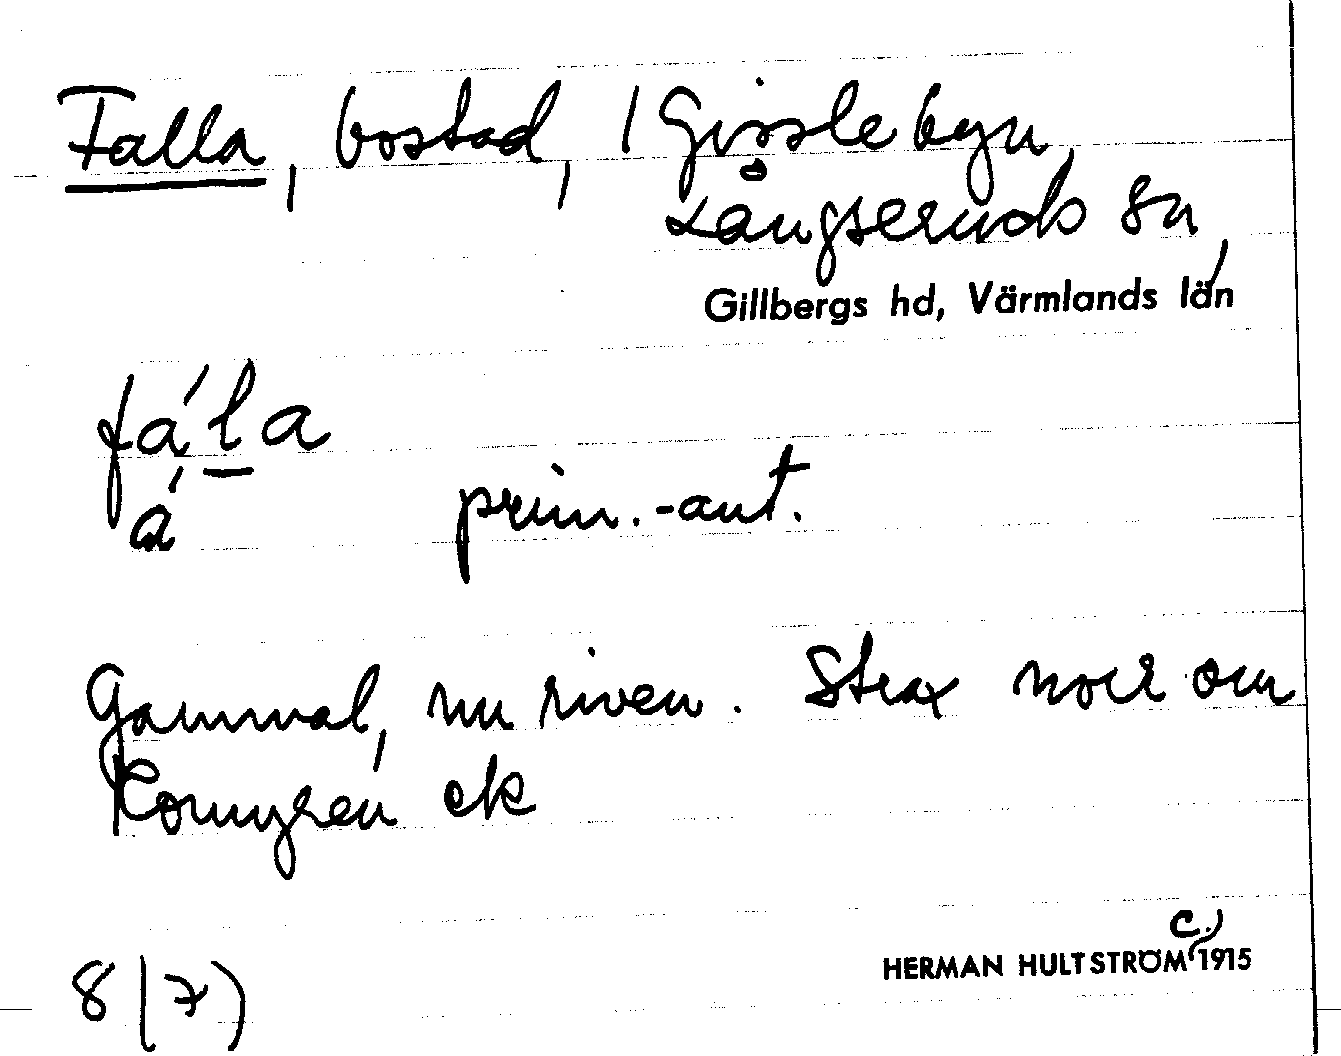 Falla, bostad, / Gisslebyn,
Långseruds sn,
Gillbergs hd, Värmlands län
fá'la
á prim.-ant.
Gammal, nu riven. Strax norr om
Kornyren ek
c.)
HERMAN HULTSTRÖM 1915
8(7)